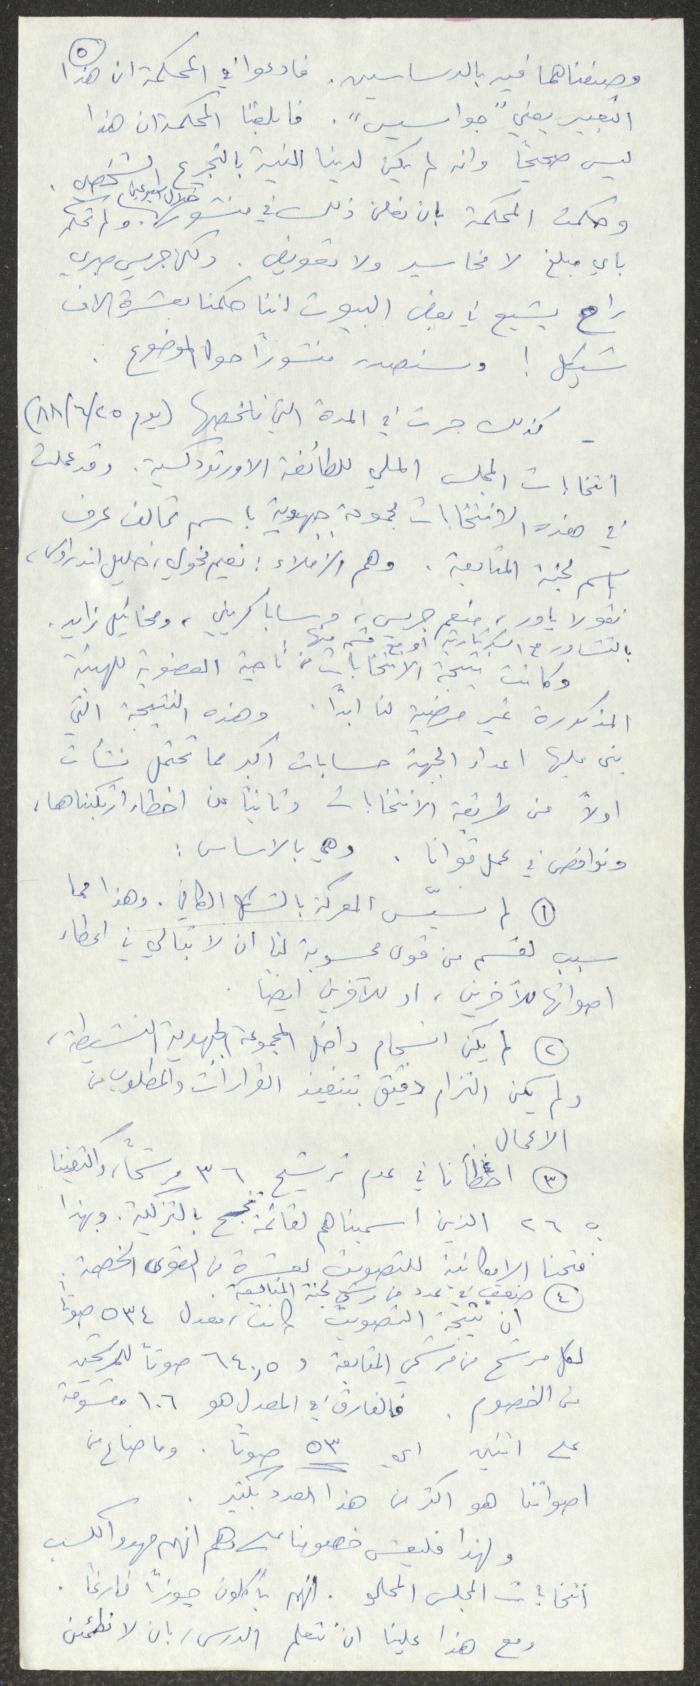 ٥
وصفناهما فيه بالدساسين. فادعوا في المحكمة ان هذا
التعبير يعني "جواسيس". فابلغنا المحكمة ان هذا
ليس صحيحاً وانه لم يكن لدينا النية بالتجريح الشخصي.
وحكمت المحكمة بان نعلن ذلك في منشور خلال اسبوعين. ولم تحكم
باي مبلغ لا مخاسير ولا تعويض. ولكن جريس جبري
راح يشيع في بعض البيوت اننا حكمنا بعشرة الاف
شيكل! وسنصدر منشوراً حول الموضوع.
- كذلك جرت في المدة التي نلخصها (يوم ٢٥/٦/٨٨)
انتخابات المجلس الملي للطائفة الاورثوذكسية. وقد عملت
في هذه الانتخابات مجموعة جبهوية باسم تحالف عرف
باسم لجنة المتابعة. وهم الزملاء: نعيم مخولي، خليل اندراوس،
نقولا ياور، منعم جريس، وسابا كريني، ومخائيل زايد.
بالتشاور مع السكرتارية او مع قسم منها
وكانت نتيجة الانتخابات من ناحية العضوية للهيئة
المذكورة غير مرضية لنا ابداً. وهذه النتيجة التي
بنى عليها اعداء الجبهة حسابات اكبر مما تحتمل نشأت
اولاً من طريقة الانتخابات وثانياً عن اخطاء ارتكبناها،
ونواقص في عمل قوانا. وهي بالاساس:
① لم نسيّس المعركة بالشكل الكافي. وهذا مما
سبب لقسم من قوى محسوبة لنا ان لا تبالي في اعطاء
اصواتها للآخرين، او للآخرين ايضاً.
② لم يكن انسجام داخل المجموعة الجبهوية النشيطة،
ولم يكن التزام دقيق بتنفيذ القرارات والمطلوب من
الاعمال
③ اخطأنا في عدم ترشيح ٣٦ مرشحاً، واكتفينا
بـ ٢٦ الذين اسميناهم لقائمة تنجح بالتزكية. وبهذا
فتحنا الامكانية للتصويت لعشرة من القوى الخصمة.
④ ضعف في عدد من مرشحي لجنة المتابعة.
ان نتيجة التصويت كانت، بمعدل ٥٣٤ صوتاً
لكل مرشح من مرشحي المتابعة و ٦٤٠,٥ صوتاً للمرشحين
من الخصوم. فالفارق في المعدل هو ١٠٦ مقسومة
على اثنين اي ٥٣ صوتاً. وما ضاع من
اصواتنا هو اكثر من هذا العدد بكثير.
ولهذا فليعش خصومنا على وهم انهم مهدوا لكسب
انتخابات المجلس المحلي. انهم يأكلون جوزاً فارغاً.
ومع هذا علينا ان نتعلم الدرس، بان لا نطمئن